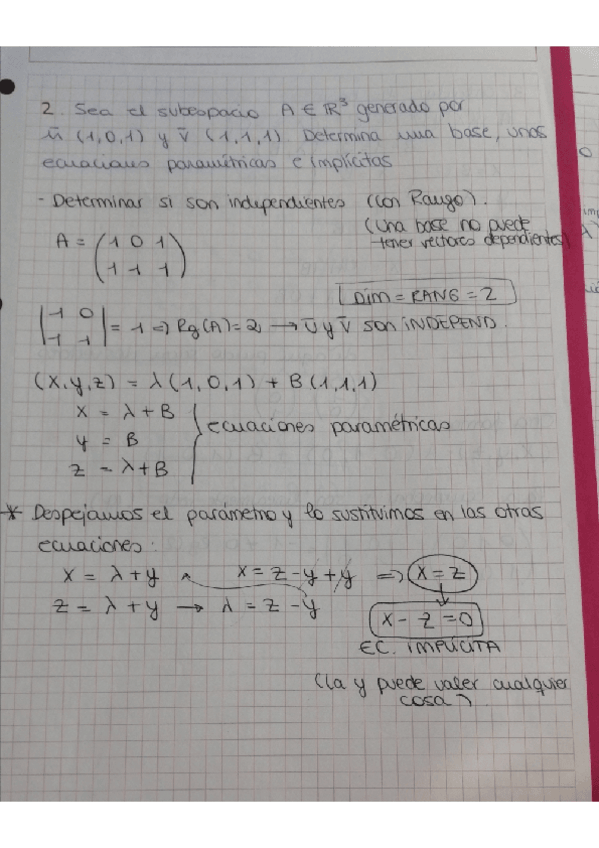 2. Sea el subespacio A ∈ ℝ³ generado por
ū (1,0,1) y v̄ (1,1,1) Determina una base, unas
ecuaciones paramétricas e implícitas
- Determinar si son independientes (con Rango).
(Una base no puede
tener vectores dependientes)
A = (1 0 1
1 1 1)
DIM = RANG = 2
|1 0
1 1| = 1 => Rg(A) = 2 → ū y v̄ SON INDEPEND.
(x,y,z) = λ(1,0,1) + B(1,1,1)
x = λ + B
y = B } ecuaciones paramétricas
z = λ + B
* Despejamos el parámetro y lo sustituimos en las otras
ecuaciones:
x = λ + y x = z - y + y => x = z
z = λ + y → λ = z - y x - z = 0
EC. IMPLÍCITA
(la y puede valer cualquier
cosa)